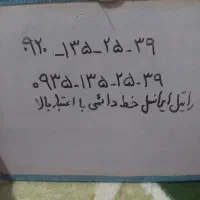 ۰۹۲۰-۱۳۵-۲۵-۳۹
۰۹۳۵-۱۳۵-۲۵-۳۹
رایتل ایرانسل خط دائمی با اعتبار بالا